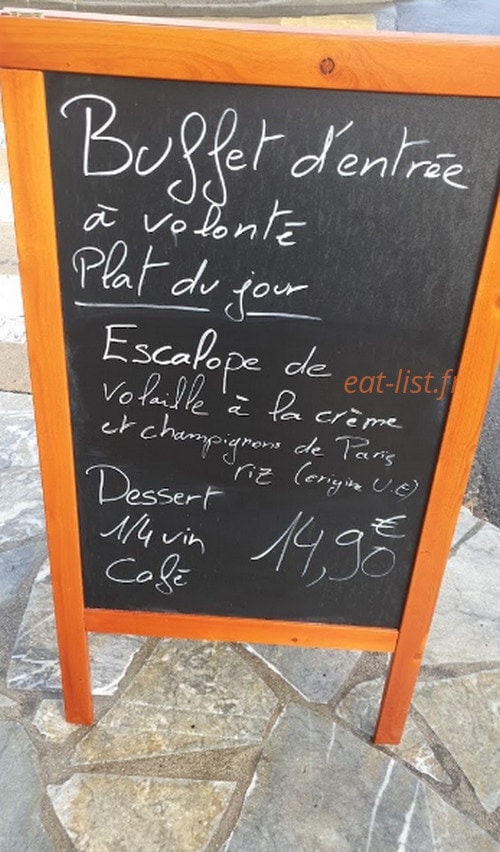 Buffet d'entrée
à volonté
Plat du jour
Escalope de
volaille à la crème
et champignons de Paris
riz (origine U.E)
Dessert
1/4 vin
Café
14,90€
eat-list.fr